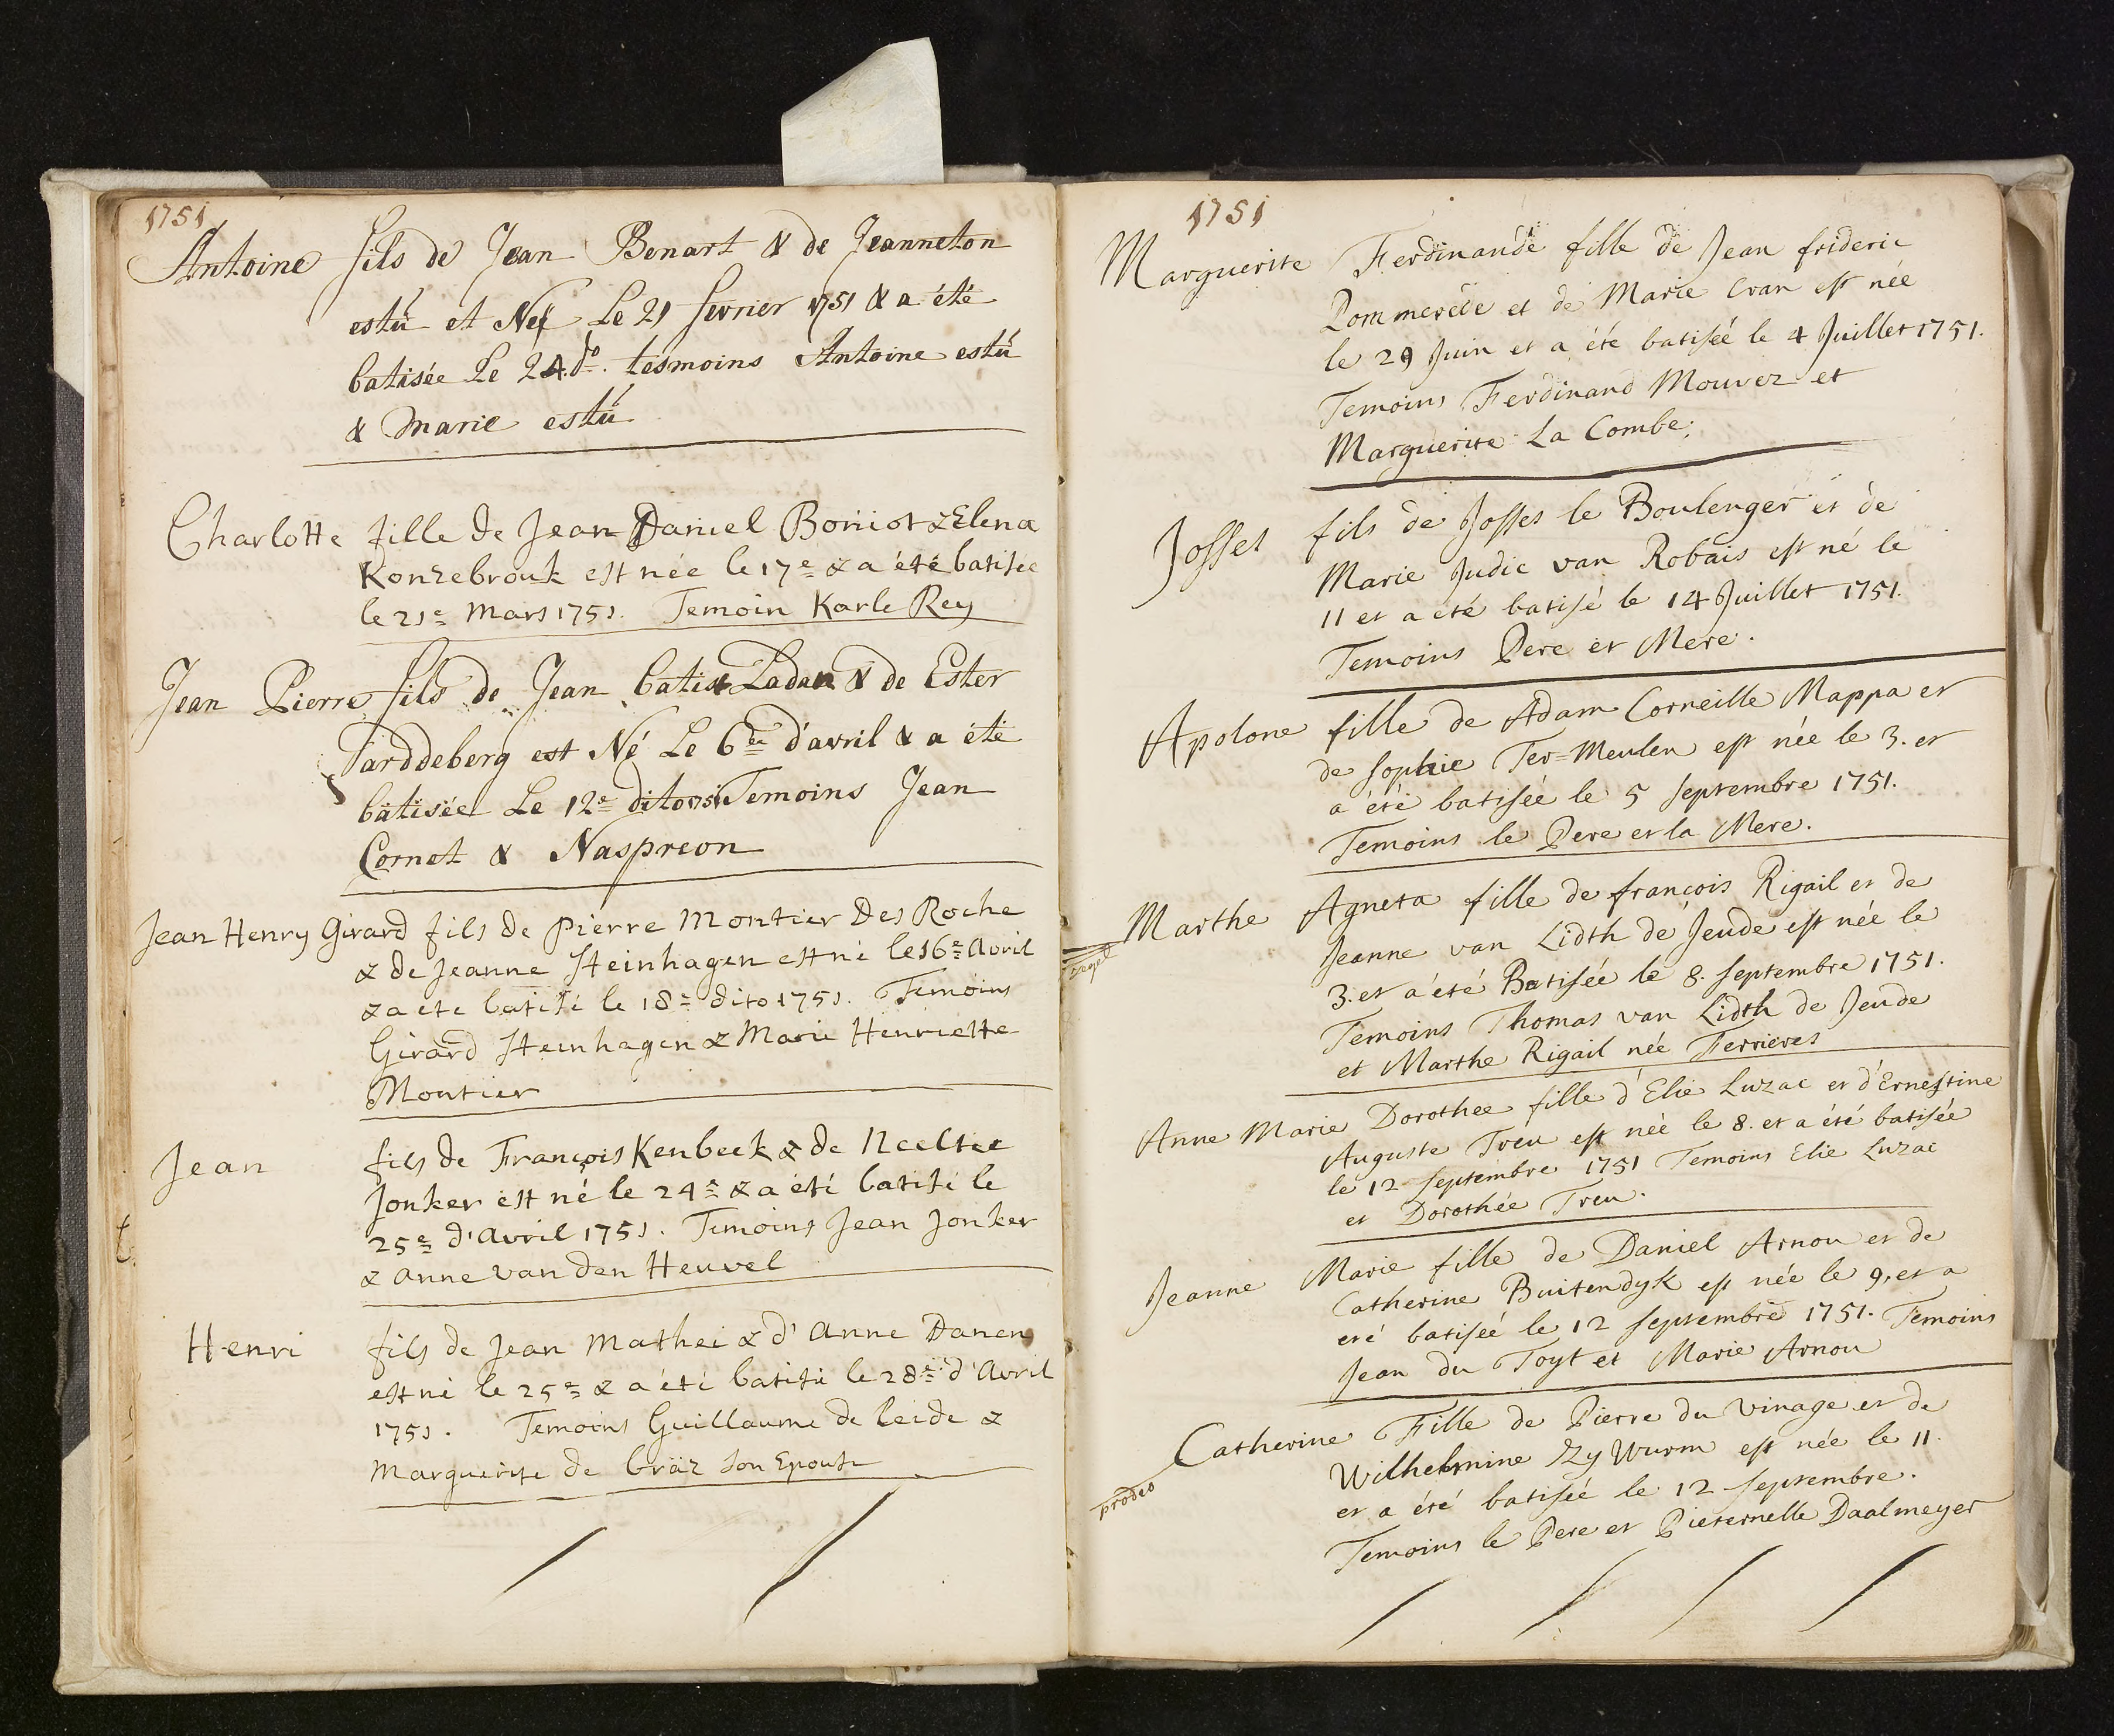 1751
Antoine fils de Jean Benart & de Jeanneton
estú et Neé Le 21 fevrier 1751 & a été
batisée Le 24 do. tesmoins Antoine estú
& Marie estú
Charlotte fille de Jean Daniel Boniot & Elena
Konzebrouk est née le 17e & a été batisée
le 21e Mars 1751. Temoin Karle Rey
Jean Pierre fils de Jean batist Ladan & de Ester
Tarddeberg est Né Le 6er d'avril & a été
batisée Le 12e dito 1751 Temoins Jean
Cornet & Naspreon
Jean Henry Girard fils de Pierre Montier Des Roche
& de Jeanne Steinhagen est né le 16e Avril
& a ete batisé le 18e dito 1751. Temoins
Girard Steinhagen & Marie Henriette
Montier
Jean fils de François Kenbeek & de Neeltie
Jonker est né le 24e & a été batisé le
25e d'Avril 1751. Temoins Jean Jonker
& Anne van den Heuvel
Henri fils de Jean Mathei & d'Anne Danen
est né le 25e & a été batisé le 28e d'Avril
1751. Temoins Guillaume de leide &
Marguerite de bräz son Epouse
1751
Marguerite Ferdinande fille de Jean frideric
Pommerede et de Marie Cran est née
le 29 Juin et a été batisée le 4 Juillet 1751.
Temoins Ferdinand Mouvez et
Marguerite La Combe.
Josses fils de Josses le Boulenger et de
Marie Judic van Robais est né le
11 et a été batisé le 14 Juillet 1751.
Temoins Pere et Mere.
Apolone fille de Adam Corneille Mappa et
de Sophie Ter=Meulen est née le 3. et
a été batisée le 5 Septembre 1751.
Temoins le Pere et la Mere.
Marthe Agneta fille de françois Rigail et de
Jeanne van Lidth de Jeude est née le
3. et a été Batisée le 8. Septembre 1751.
Temoins Thomas van Lidth de Jeude
et Marthe Rigail née Ferrieres
Anne Marie Dorothee fille d'Elie Luzac et d'Ernestine
Auguste Treu est née le 8. et a été batisée
le 12 Septembre 1751 Temoins Elie Luzac
et Dorothée Treu.
Jeanne Marie fille de Daniel Arnou et de
Catherine Buitendyk est née le 9, et a
eté batisée le 12 Septembre 1751. Temoins
Jean du Toyt et Marie Arnou
Catherine Fille de Pierre du Vinage et de
prodeo
Wilhelmine Zy Wurm est née le 11.
et a été batisée le 12 Septembre.
Temoins le Pere et Pieternelle Daalmeyer